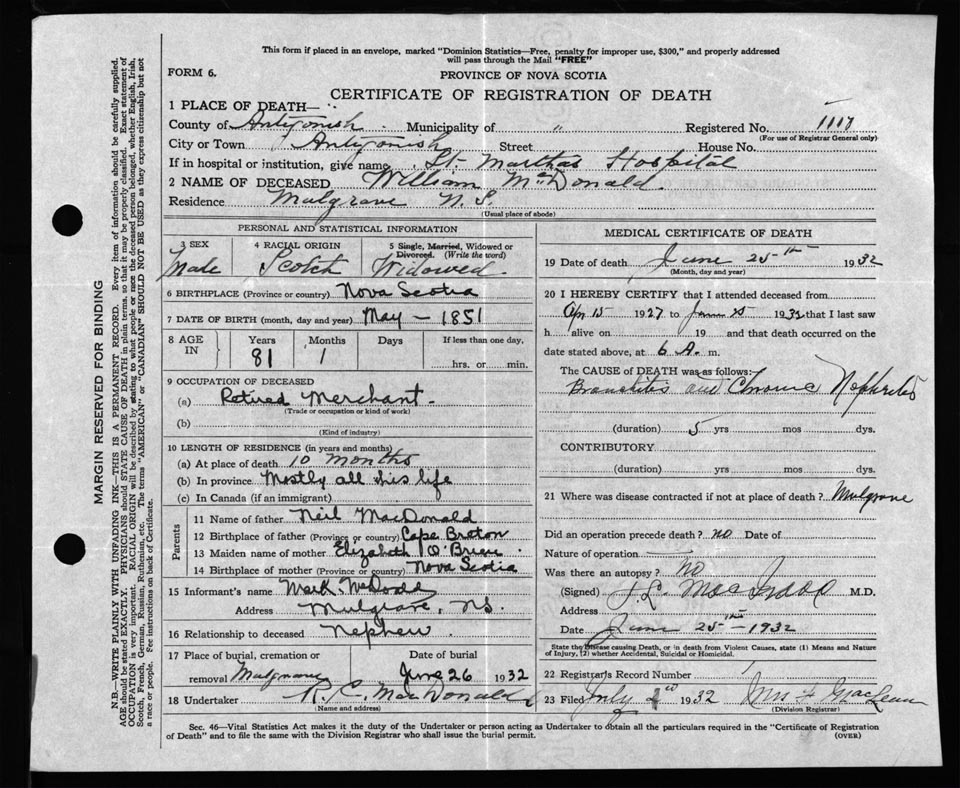 This form if placed in an envelope, marked "Dominion Statistics—Free, penalty for improper use, $300," and properly addressed
will pass through the Mail "FREE"
FORM 6.
PROVINCE OF NOVA SCOTIA
CERTIFICATE OF REGISTRATION OF DEATH
1 PLACE OF DEATH—
County of Antigonish Municipality of " Registered No. 1117
(For use of Registrar General only)
City or Town Antigonish Street House No.
If in hospital or institution, give name St. Marthas Hospital
2 NAME OF DECEASED William McDonald.
Residence Mulgrave N. S.
(Usual place of abode)
PERSONAL AND STATISTICAL INFORMATION
3 SEX 4 RACIAL ORIGIN 5 Single, Married, Widowed or
Divorced. (Write the word)
Male Scotch Widowed.
6 BIRTHPLACE (Province or country) Nova Scotia
7 DATE OF BIRTH (month, day and year) May — 1851
8 AGE IN Years Months Days If less than one day,
81 1 hrs. or min.
9 OCCUPATION OF DECEASED
(a) Retired Merchant.
(Trade or occupation or kind of work)
(b)
(Kind of industry)
10 LENGTH OF RESIDENCE (in years and months)
(a) At place of death 10 months
(b) In province Mostly all his life
(c) In Canada (if an immigrant)
Parents
11 Name of father Neil MacDonald
12 Birthplace of father (Province or country) Cape Breton
13 Maiden name of mother Elizabeth O'Brien
14 Birthplace of mother (Province or country) Nova Scotia
15 Informant's name Mark
Address Mulgrave, N.S.
16 Relationship to deceased Nephew.
17 Place of burial, cremation or Date of burial
removal Mulgrave June 26 1932
18 Undertaker R. C. MacDonald
(Name and address)
MEDICAL CERTIFICATE OF DEATH
19 Date of death June 25th 1932
(Month, day and year)
20 I HEREBY CERTIFY that I attended deceased from
Apr 15 1927 to 1932 that I last saw
h alive on 19 and that death occurred on the
date stated above, at 6 A. m.
The CAUSE of DEATH was as follows:
Bronchitis and Chronic Nephritis
(duration) 5 yrs mos dys.
CONTRIBUTORY
(duration) yrs mos dys.
21 Where was disease contracted if not at place of death? Mulgrave
Did an operation precede death? no Date of
Nature of operation
Was there an autopsy? No
(Signed) M.D.
Address
Date June 25th — 1932
State the Disease causing Death, or in death from Violent Causes, state (1) Means and Nature
of Injury, (2) whether Accidental, Suicidal or Homicidal.
22 Registrar's Record Number
23 Filed July 1932 Mrs F MacLean
(Division Registrar)
Sec. 46—Vital Statistics Act makes it the duty of the Undertaker or person acting as Undertaker to obtain all the particulars required in the "Certificate of Registration
of Death" and to file the same with the Division Registrar who shall issue the burial permit. (OVER)
MARGIN RESERVED FOR BINDING
N.B.—WRITE PLAINLY WITH UNFADING INK—THIS IS A PERMANENT RECORD. Every item of information should be carefully supplied.
AGE should be stated EXACTLY. PHYSICIANS should STATE CAUSE OF DEATH in plain terms, so that it may be properly classified. Exact statement of
OCCUPATION is very important. RACIAL ORIGIN will be described by stating to what people or race the deceased person belonged, whether English, Irish,
Scotch, French, German, Russian, Ruthenian, etc. The terms "AMERICAN" or "CANADIAN" SHOULD NOT BE USED as they express citizenship but not
a race or people. See instructions on back of Certificate.